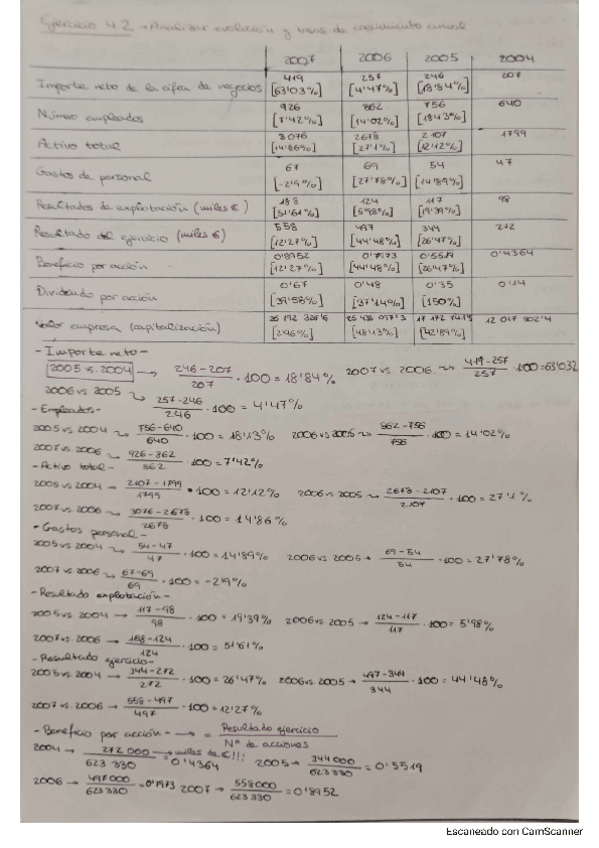 Ejercicio 4.2 → Analizar evolución y tasas de crecimiento anual
2007 2006 2005 2004
Importe neto de la cifra de negocios 419 257 246 207
[63'03%] [4'47%] [18'84%]
Número empleados 926 862 756 640
[7'42%] [14'02%] [18'13%]
Activo total 3076 2678 2107 1799
[14'86%] [27'1%] [12'12%]
Gastos de personal 67 69 54 47
[-2'9%] [27'78%] [14'89%]
Resultados de explotación (miles €) 188 124 117 98
[51'61%] [5'98%] [19'39%]
Resultado del ejercicio (miles €) 558 497 344 272
[12'27%] [44'48%] [26'47%]
Beneficio por acción 0'8952 0'7973 0'5519 0'4364
[12'27%] [44'48%] [26'47%]
Dividendo por acción 0'67 0'48 0'35 0'14
[39'58%] [37'14%] [150%]
Valor empresa (capitalización)
[2'96%] [48'13%] [42'89%]
- Importe neto -
2005 vs. 2004 → 246-207/207 · 100 = 18'84% 2007 vs. 2006 → 419-257/257 · 100 = 63'032
2006 vs 2005 → 257-246/246 · 100 = 4'47%
- Empleados -
2005 vs 2004 → 756-640/640 · 100 = 18'13% 2006 vs 2005 → 862-756/756 · 100 = 14'02%
2007 vs 2006 → 926-862/862 · 100 = 7'42%
- Activo total -
2005 vs 2004 → 2107-1799/1799 · 100 = 12'12% 2006 vs 2005 → 2678-2107/2107 · 100 = 27'1%
2007 vs 2006 → 3076-2678/2678 · 100 = 14'86%
- Gastos personal -
2005 vs 2004 → 54-47/47 · 100 = 14'89% 2006 vs 2005 → 69-54/54 · 100 = 27'78%
2007 vs 2006 → 67-69/69 · 100 = -2'9%
- Resultado explotación -
2005 vs. 2004 → 117-98/98 · 100 = 19'39% 2006 vs 2005 → 124-117/117 · 100 = 5'98%
2007 vs. 2006 → 188-124/124 · 100 = 51'61%
- Resultado ejercicio -
2005 vs. 2004 → 344-272/272 · 100 = 26'47% 2006 vs. 2005 → 497-344/344 · 100 = 44'48%
2007 vs 2006 → 558-497/497 · 100 = 12'27%
- Beneficio por acción - → = Resultado ejercicio/Nº de acciones
2004 → 272 000/623 330 = 0'4364 → miles de €!!! 2005 → 344 000/623 330 = 0'5519
2006 → 497000/623 330 = 0'7973 2007 → 558000/623 330 = 0'8952
Escaneado con CamScanner